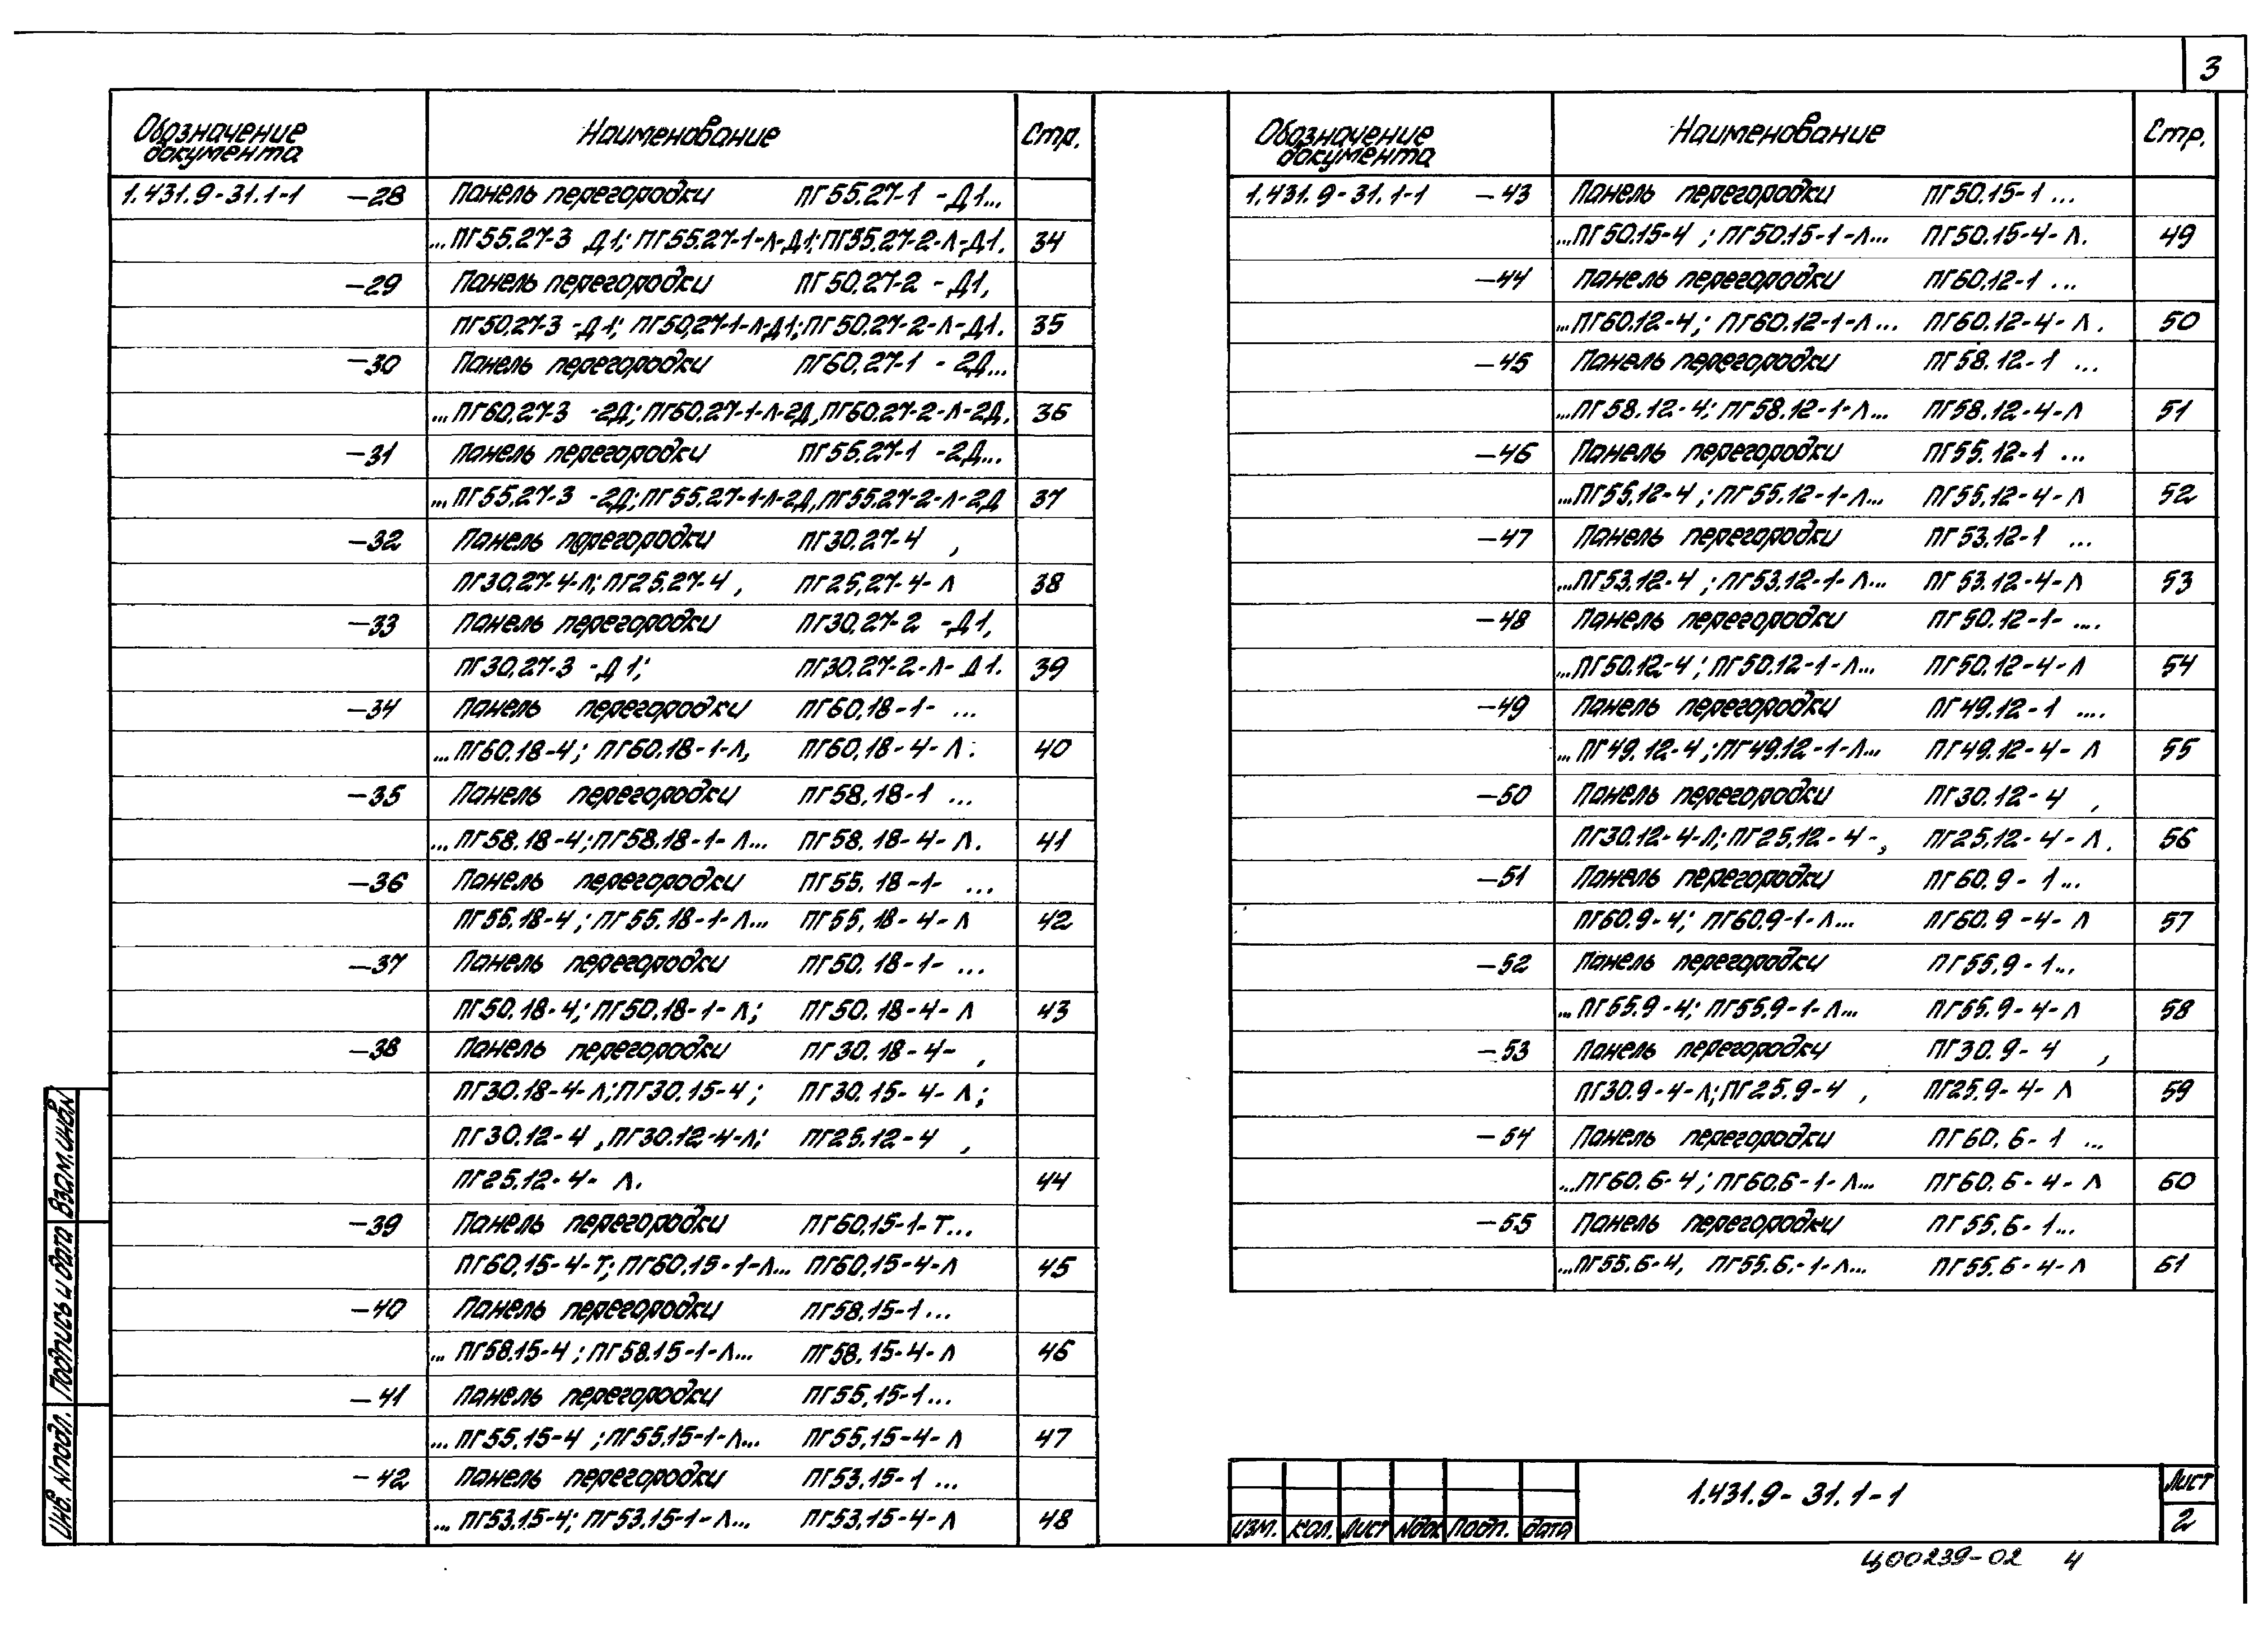 3
Обозначение документа Наименование Стр.
1.431.9-31.1-1 -28 Панель перегородки ПГ55.27-1 -Д1...
...ПГ55.27-3 Д1; ПГ55.27-1-Л-Д1; ПГ55.27-2-Л-Д1. 34
-29 Панель перегородки ПГ50.27-2 -Д1,
ПГ50.27-3 -Д1; ПГ50.27-1-Л-Д1; ПГ50.27-2-Л-Д1. 35
-30 Панель перегородки ПГ60.27-1 -2Д...
...ПГ60.27-3 -2Д; ПГ60.27-1-Л-2Д, ПГ60.27-2-Л-2Д. 36
-31 Панель перегородки ПГ55.27-1 -2Д...
...ПГ55.27-3 -2Д; ПГ55.27-1-Л-2Д, ПГ55.27-2-Л-2Д 37
-32 Панель перегородки ПГ30.27-4 ,
ПГ30.27-4-Л; ПГ25.27-4 , ПГ25.27-4-Л 38
-33 Панель перегородки ПГ30.27-2 -Д1,
ПГ30.27-3 -Д1; ПГ30.27-2-Л-Д1. 39
-34 Панель перегородки ПГ60.18-1- ...
...ПГ60.18-4; ПГ60.18-1-Л, ПГ60.18-4-Л. 40
-35 Панель перегородки ПГ58.18-1 ...
...ПГ58.18-4; ПГ58.18-1-Л... ПГ58.18-4-Л. 41
-36 Панель перегородки ПГ55.18-1- ...
ПГ55.18-4; ПГ55.18-1-Л... ПГ55.18-4-Л 42
-37 Панель перегородки ПГ50.18-1- ...
ПГ50.18-4; ПГ50.18-1-Л; ПГ50.18-4-Л 43
-38 Панель перегородки ПГ30.18-4- ,
ПГ30.18-4-Л; ПГ30.15-4; ПГ30.15-4-Л;
ПГ30.12-4 , ПГ30.12-4-Л; ПГ25.12-4 ,
ПГ25.12-4-Л. 44
-39 Панель перегородки ПГ60.15-1-Т...
ПГ60.15-4-Т; ПГ60.15-1-Л... ПГ60.15-4-Л 45
-40 Панель перегородки ПГ58.15-1...
... ПГ58.15-4; ПГ58.15-1-Л... ПГ58.15-4-Л 46
-41 Панель перегородки ПГ55.15-1...
... ПГ55.15-4 ; ПГ55.15-1-Л... ПГ55.15-4-Л 47
-42 Панель перегородки ПГ53.15-1 ...
... ПГ53.15-4; ПГ53.15-1-Л... ПГ53.15-4-Л 48
Обозначение документа Наименование Стр.
1.431.9-31.1-1 -43 Панель перегородки ПГ50.15-1 ...
...ПГ50.15-4 ; ПГ50.15-1-Л... ПГ50.15-4-Л. 49
-44 Панель перегородки ПГ60.12-1 ...
...ПГ60.12-4; ПГ60.12-1-Л... ПГ60.12-4-Л. 50
-45 Панель перегородки ПГ58.12-1 ...
...ПГ58.12-4; ПГ58.12-1-Л... ПГ58.12-4-Л 51
-46 Панель перегородки ПГ55.12-1 ...
...ПГ55.12-4 ; ПГ55.12-1-Л... ПГ55.12-4-Л 52
-47 Панель перегородки ПГ53.12-1 ...
...ПГ53.12-4 ; ПГ53.12-1-Л... ПГ53.12-4-Л 53
-48 Панель перегородки ПГ50.12-1- ....
...ПГ50.12-4 ; ПГ50.12-1-Л... ПГ50.12-4-Л 54
-49 Панель перегородки ПГ49.12-1 ....
...ПГ49.12-4; ПГ49.12-1-Л... ПГ49.12-4-Л 55
-50 Панель перегородки ПГ30.12-4 ,
ПГ30.12-4-Л; ПГ25.12-4-, ПГ25.12-4-Л. 56
-51 Панель перегородки ПГ60.9-1...
ПГ60.9-4; ПГ60.9-1-Л... ПГ60.9-4-Л 57
-52 Панель перегородки ПГ55.9-1...
...ПГ55.9-4; ПГ55.9-1-Л... ПГ55.9-4-Л 58
-53 Панель перегородки ПГ30.9-4 ,
ПГ30.9-4-Л; ПГ25.9-4 , ПГ25.9-4-Л 59
-54 Панель перегородки ПГ60.6-1 ...
...ПГ60.6-4; ПГ60.6-1-Л... ПГ60.6-4-Л 60
-55 Панель перегородки ПГ55.6-1...
...ПГ55.6-4, ПГ55.6.-1-Л... ПГ55.6-4-Л 61
Инв. №подл. Подпись и дата Взам.инв№
Изм. Кол. Лист №док Подп. Дата
1.431.9-31.1-1
Лист
2
Ц00239-02 4